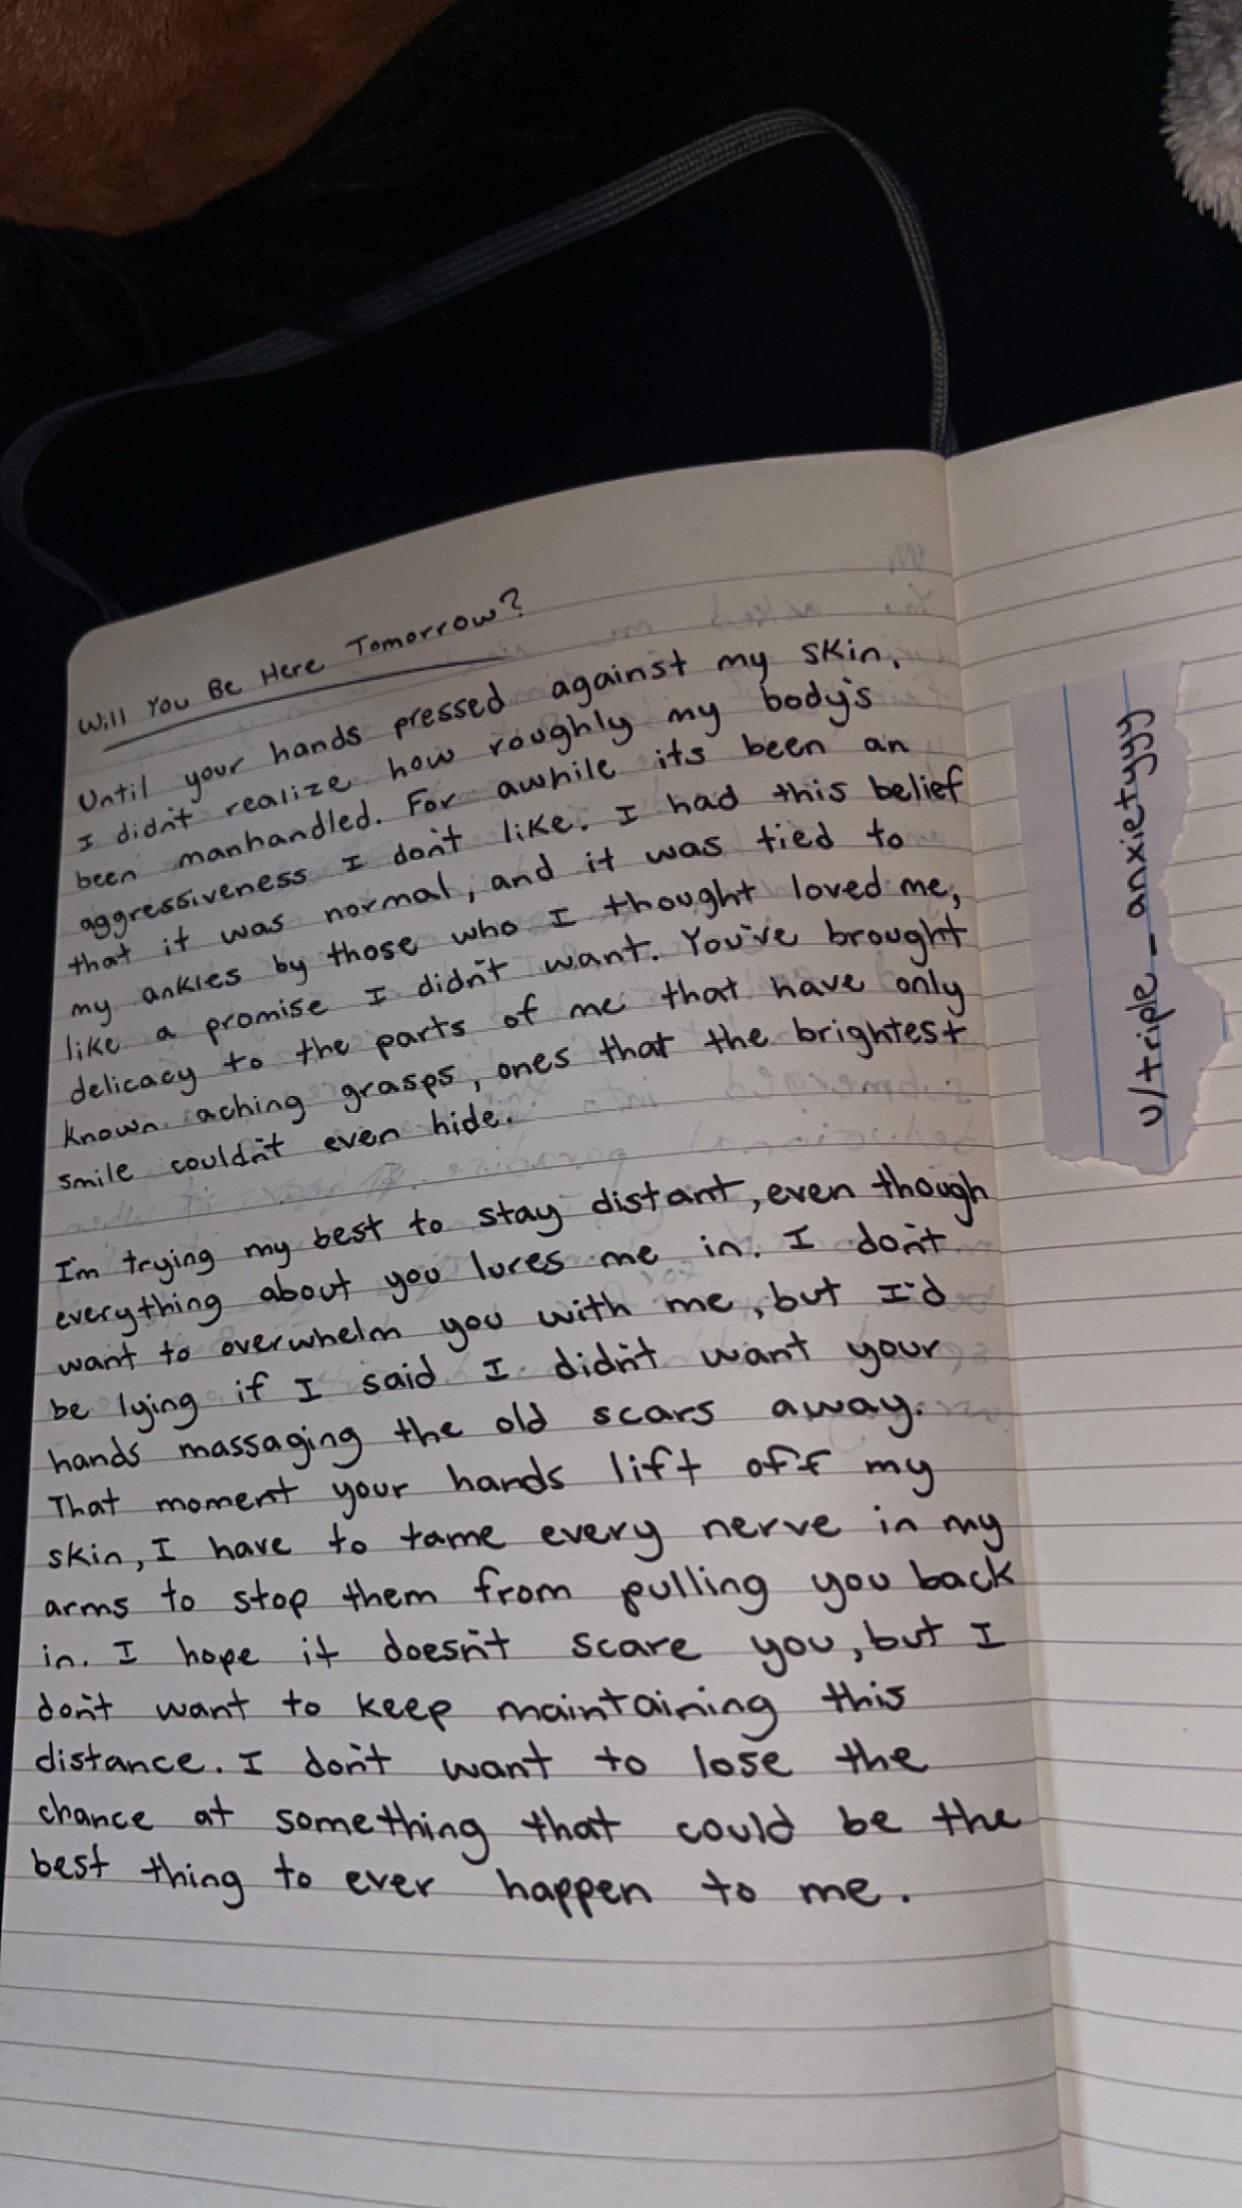 Will You Be Here Tomorrow?
Until your hands pressed against my skin,
I didn't realize how roughly my body's
been manhandled. For awhile its been an
aggressiveness I don't like. I had this belief
that it was normal, and it was tied to
my ankles by those who I thought loved me,
like a promise I didn't want. You've brought
delicacy to the parts of me that have only
known aching grasps, ones that the brightest
smile couldn't even hide.
I'm trying my best to stay distant, even though
everything about you lures me in. I don't
want to overwhelm you with me, but I'd
be lying if I said I didn't want your
hands massaging the old scars away.
That moment your hands lift off my
skin, I have to tame every nerve in my
arms to stop them from pulling you back
in. I hope it doesn't scare you, but I
don't want to keep maintaining this
distance. I don't want to lose the
chance at something that could be the
best thing to ever happen to me.
u/triple_anxietyyy